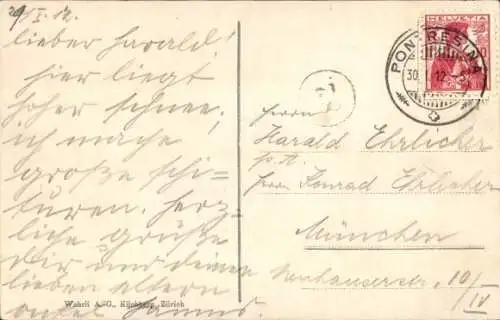 29/I. 12.
lieber Harald!
hier liegt
hoher schnee;
ich mache
große schi-
turen. herz-
liche grüße
dir und deinen
lieben eltern
onkel Hanns.
Wehrli A.-G., Kilchberg, Zürich
HELVETIA
PONTRESINA
30. I. 12
Herrn
Harald Ehrlicher
p. A.
Herrn Konrad Ehrlicher
München
Neuhauserstr. 10/IV